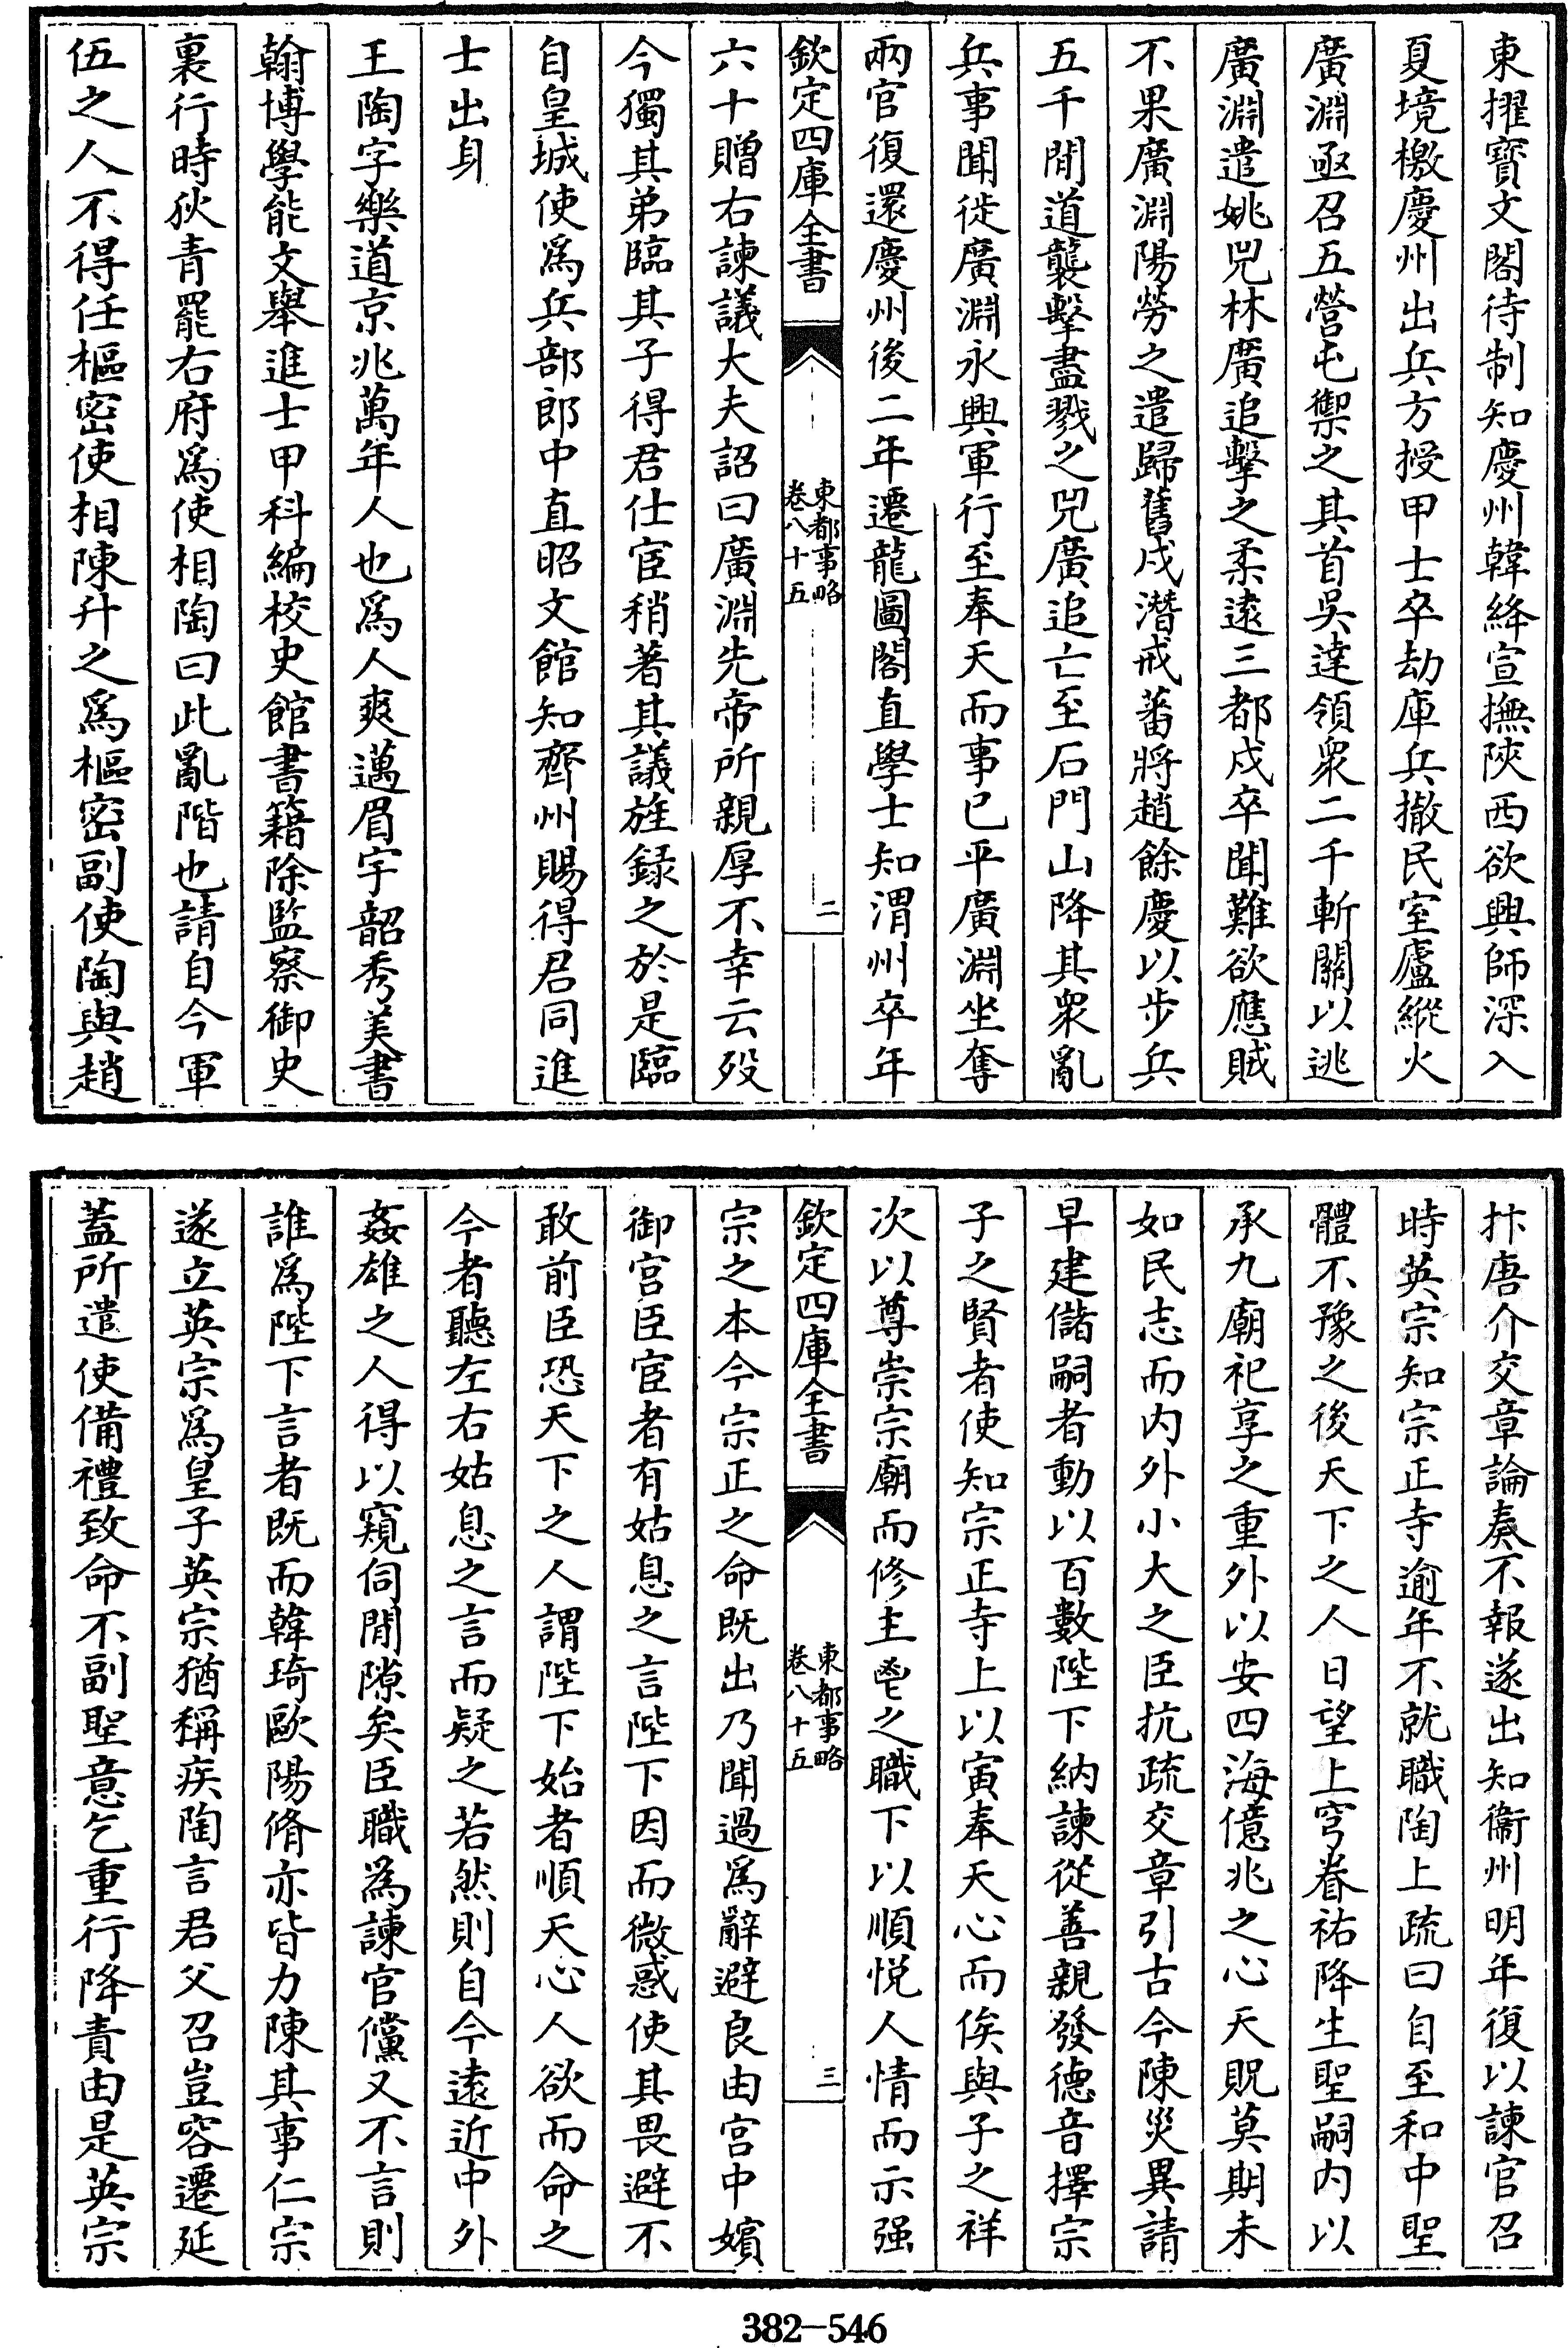 東擢寳文閣待制知慶州韓絳宣撫陜西欲興師深入
夏境檄慶州出兵方授甲士卒劫庫兵撤民室廬縱火
廣淵亟召五營屯禦之其首吳達領衆二千斬關以逃
廣淵遣姚兕林廣追擊之柔逺三都戍卒聞難欲應賊
不果廣淵陽勞之遣歸舊戍潛戒蕃將趙餘慶以步兵
五千間道襲擊盡戮之兕廣追亡至石門山降其衆亂
兵事聞徙廣淵永興軍行至奉天而事已平廣淵坐奪
兩官復還慶州後二年遷龍圖閣直學士知渭州卒年
欽定四庫全書
東都事略
卷八十五
二
六十贈右諫議大夫詔曰廣淵先帝所親厚不幸云歿
今獨其弟臨其子得君仕宦稍著其議旌録之於是臨
自皇城使爲兵部郎中直昭文館知齊州賜得君同進
士出身
王陶字樂道京兆萬年人也爲人爽邁眉宇韶秀美書
翰博學能文舉進士甲科編校史館書籍除監察御史
裏行時狄青罷右府爲使相陶曰此亂階也請自今軍
伍之人不得任樞密使相陳升之爲樞密副使陶與趙
抃唐介交章論奏不報遂出知衞州明年復以諫官召
時英宗知宗正寺逾年不就職陶上疏曰自至和中聖
體不豫之後天下之人日望上穹眷祐降生聖嗣内以
承九廟祀享之重外以安四海億兆之心天貺莫期未
如民志而内外小大之臣抗疏交章引古今陳災異請
早建儲嗣者動以百數陛下納諫從善親發德音擇宗
子之賢者使知宗正寺上以寅奉天心而俟與子之祥
次以尊崇宗廟而修主鬯之職下以順悦人情而示强
欽定四庫全書
東都事略
卷八十五
三
宗之本今宗正之命既出乃聞過爲辭避良由宫中嬪
御宫臣宦者有姑息之言陛下因而微惑使其畏避不
敢前臣恐天下之人謂陛下始者順天心人欲而命之
今者聽左右姑息之言而疑之若然則自今逺近中外
姦雄之人得以窺伺間隙矣臣職爲諫官儻又不言則
誰爲陛下言者既而韓琦歐陽脩亦皆力陳其事仁宗
遂立英宗爲皇子英宗猶稱疾陶言君父召豈容遷延
蓋所遣使備禮致命不副聖意乞重行降責由是英宗
382-546